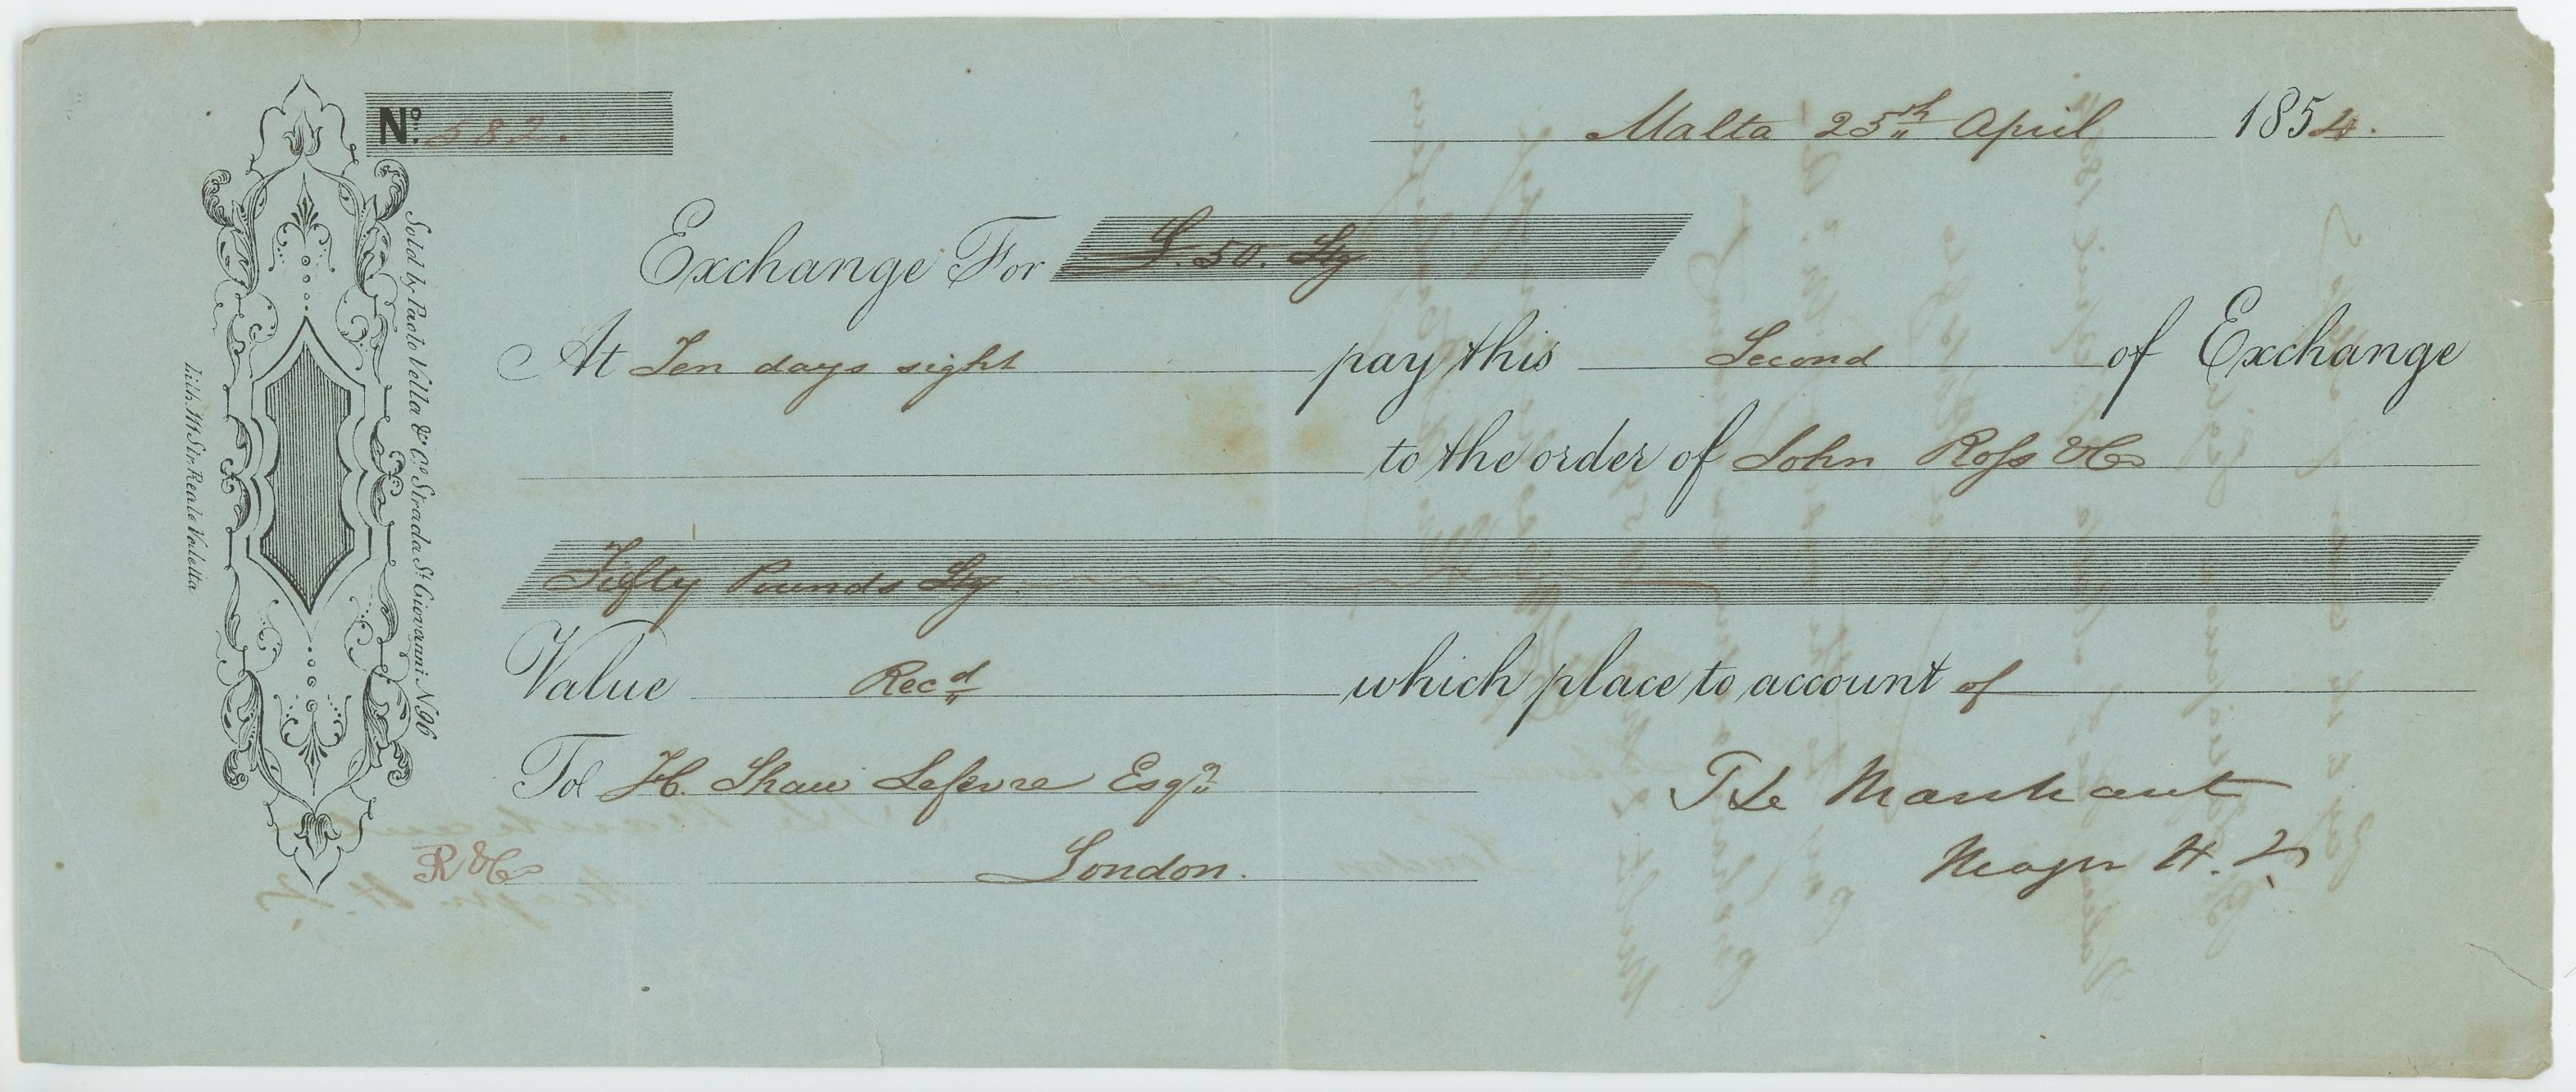 No. 582.
Malta 25th April 1854.
Exchange For £. 50. Stg
At Ten days sight pay this Second of Exchange
to the order of John Ross & Co
Fifty Pounds Stg
Value Recd which place to account of
To H. Shaw Lefevre Esqr
London.
T Le Marchant
Majr H. P.
R & Co
Sold by Paolo Vella & Co. Strada St. Giovanni N. 96
Lith. 141 Str. Reale Valetta